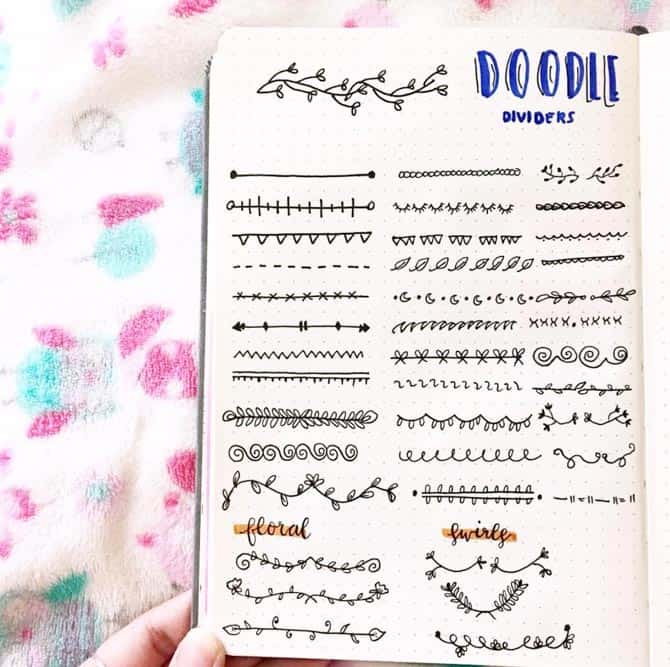 DOODLE
DIVIDERS
floral
swirls